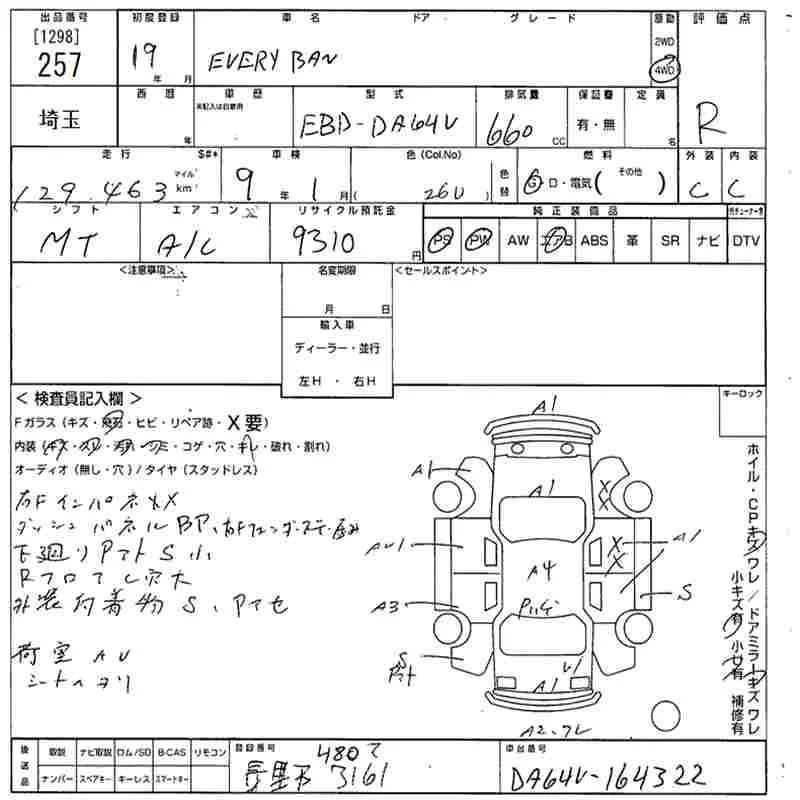 出品番号 初度登録 車名 ドア グレード 駆動 評価点
[1298]
257 19年 月 EVERY BAN 2WD 4WD R
埼玉 西暦 年 車歴 未記入は自家用 型式 EBD-DA64V 排気量 660 CC 保証書 有・無 定員 名
走行 129,463 マイル km $#* 車検 9年 1月 色(Col.No) ( 26U ) 色替 燃料 G・D・電気( その他 ) 外装 C 内装 C
シフト MT エアコン A/C リサイクル預託金 9310円 純正装備品 PS PW AW エアB ABS 革 SR ナビ DTV
<注意事項> 名変期限 月 日 <セールスポイント>
輸入車
ディーラー・並行
左H ・ 右H
<検査員記入欄> キーロック
Fガラス(キズ・飛石・ヒビ・リペア跡・X要)
内装(キズ・コゲ・穴・キレ・破れ・割れ)
オーディオ(無し・穴)/タイヤ(スタッドレス)
右Fインパネ XX
ダッシュパネルBP、右Fフェンダーステー歪み
下廻りアマトS小
Rフロア
外装付着物S、アセ
荷室 AU
シートヘタリ
A1
A1
A1
X
X
AU1
X
X
A1
A4
A3
S
S
U1
A1
A2、ワレ
ホイル・CPキズワレ/ドアミラーキズワレ
小キズ有 小凹有 補修有
後送品 取説 ナビ取説 ロム/SD B-CAS リモコン 登録番号 480 て 車台番号
ナンバー スペアキー キーレス スマートキー 3161 DA64V-164322